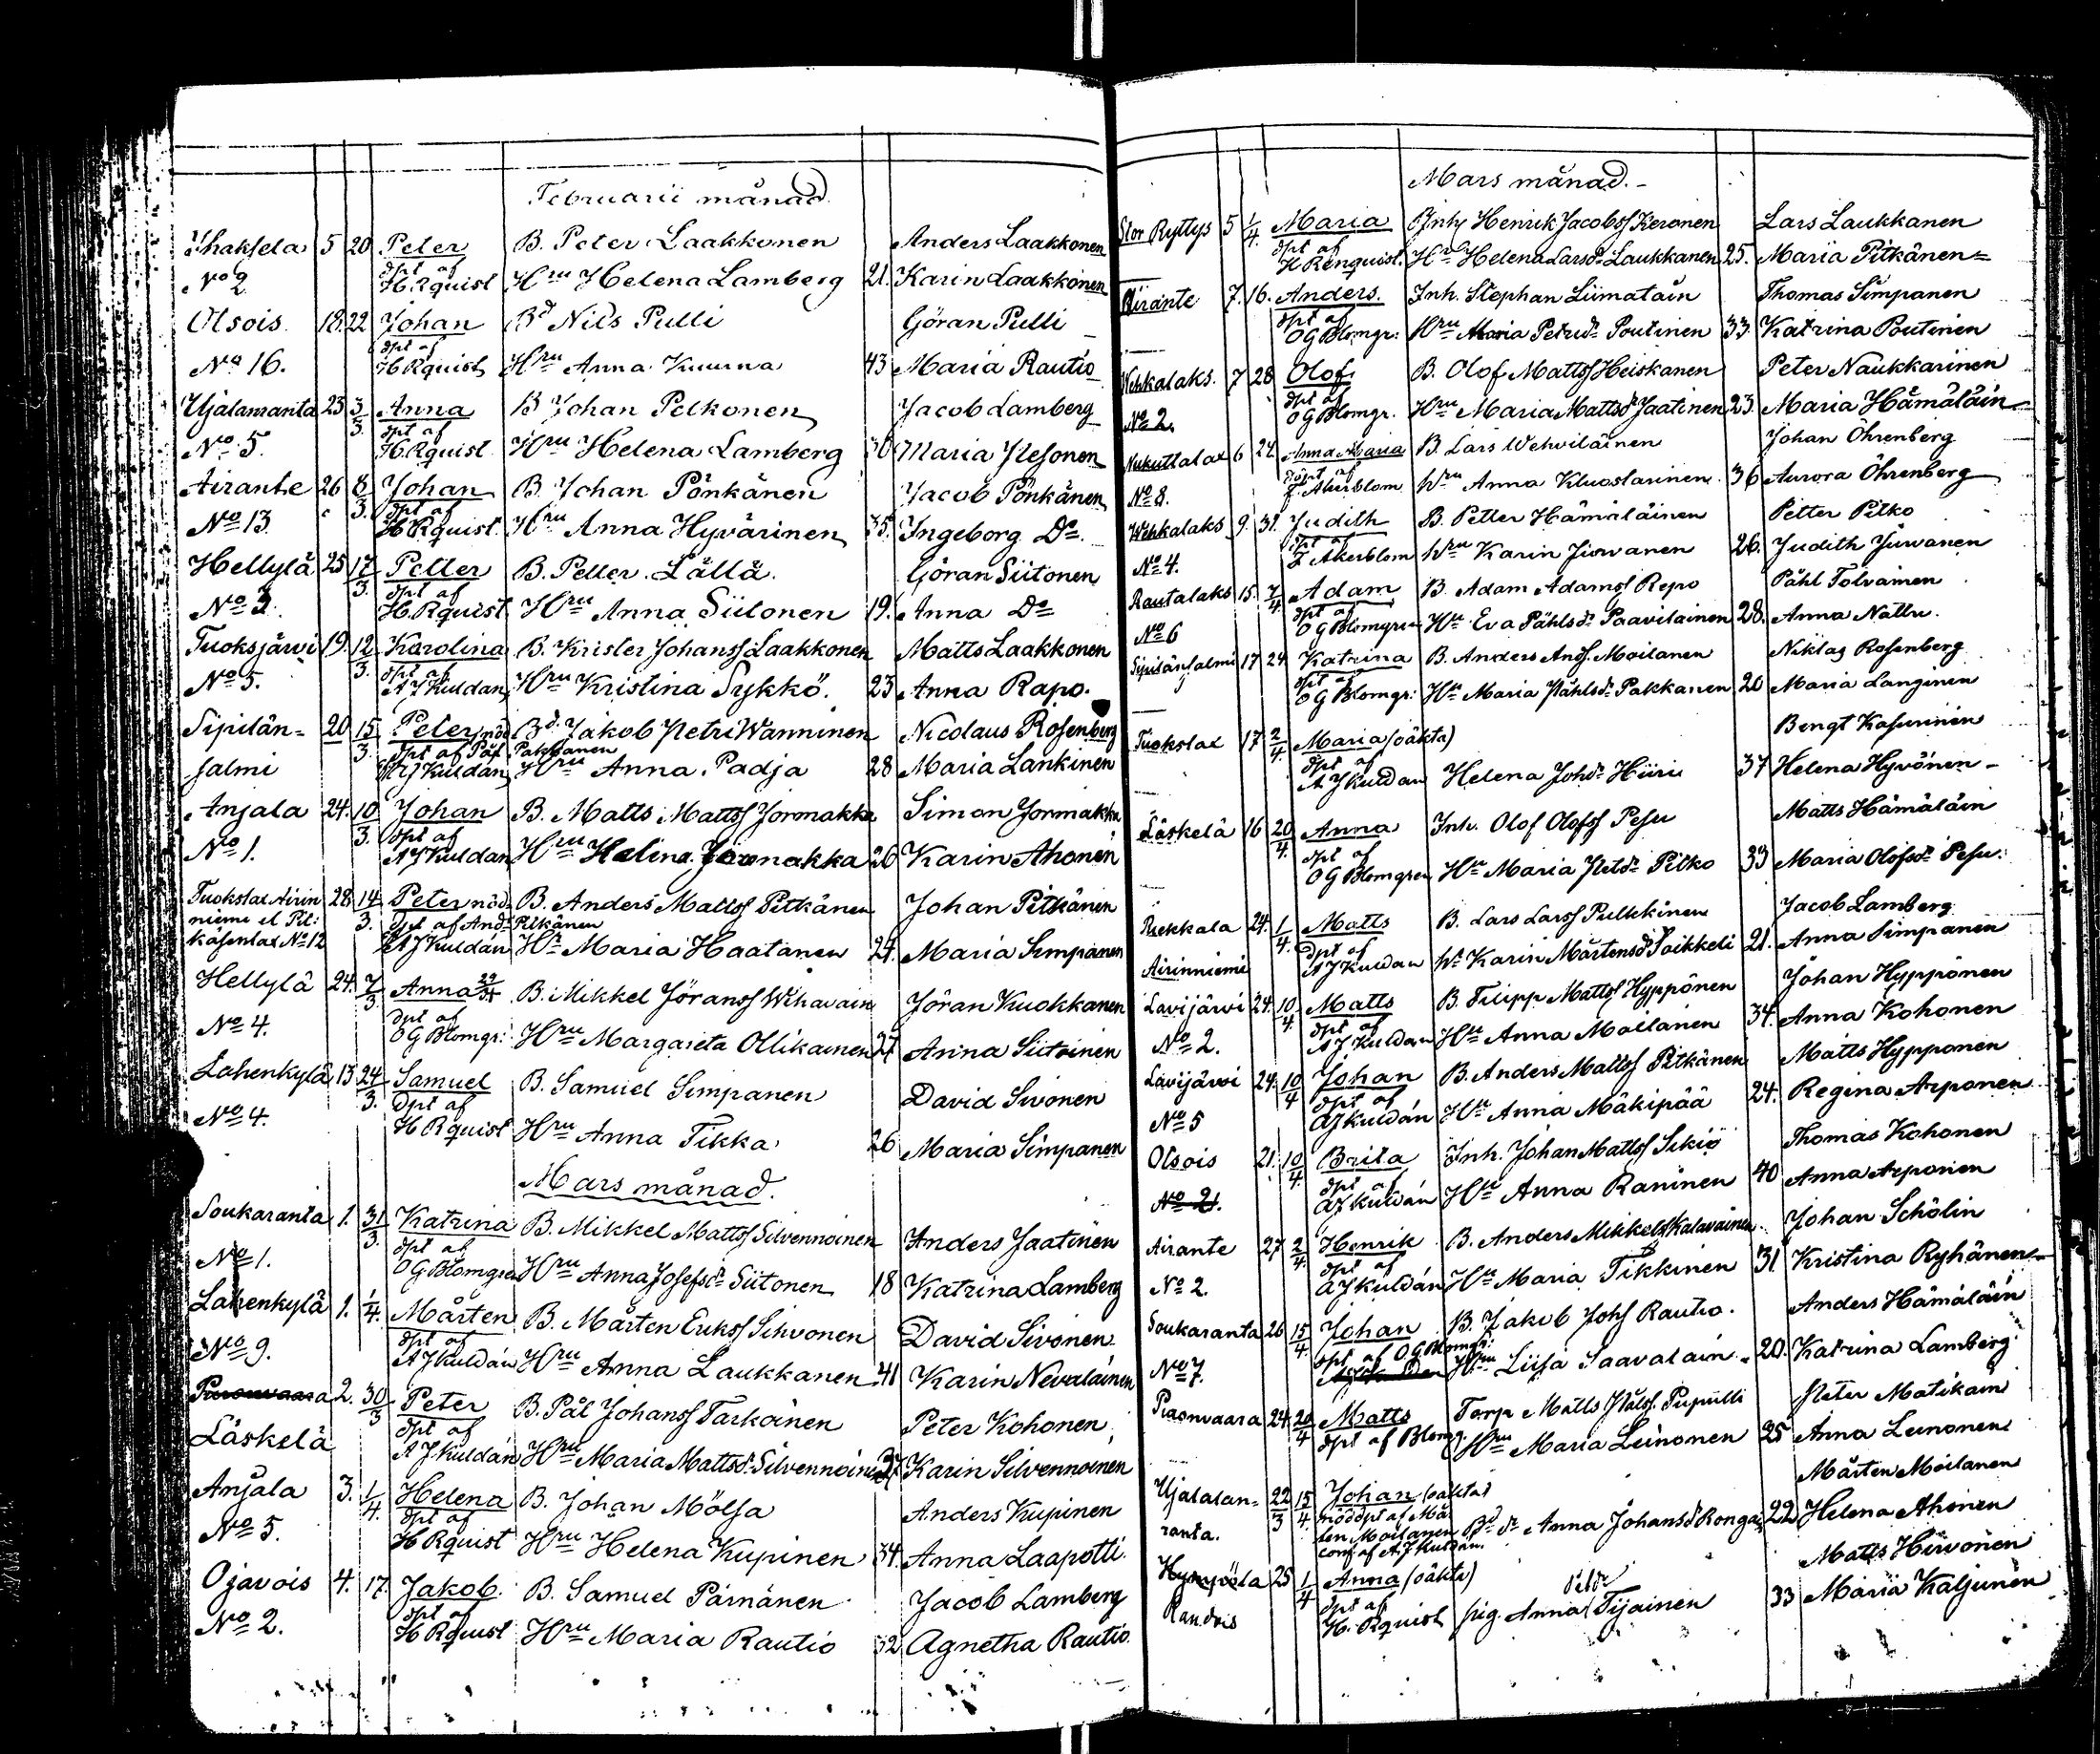 Februarii månad
Ihaksela 5 20 Peter B. Peter Laakkonen Anders Laakkonen
No 2 dpt af H. Rquist Hru Helena Lamberg 21. Karin Laakkonen
Olsois 18. 22 Johan Bd Nils Pulli Göran Pulli
No 16. dpt af H Rquist Hru Anna Kuurna 43 Maria Rautio
Ujalanranta 23 3/3. Anna B Johan Pelkonen Jacob Lamberg
No 5. dpt af H. Rquist Hru Helena Lamberg 30 Maria Ilesonen
Airante 26 8/3. Johan B. Johan Pönkänen Jacob Pönkänen
No 13 dpt af H Rquist. Hru Anna Hyvärinen 35. Ingeborg Do.
Hellylä 25 17/3. Petter B. Petter Lällä. Göran Siitonen
No 3. dpt af H. Rquist Hru Anna Siitonen 19. Anna Do
Tuoksjärvi 19. 12/3. Karolina B. Krister Johanss Laakkonen Matts Laakkonen
No 5. dpt af A J Kuldan Hru Kristina Sykkö. 23 Anna Rapo.
Sipilän- 20 15/3. Peter nöd Bd. Jakob Petri Wanninen Nicolaus Rosenberg
salmi dpt af Pål Pakkanen A J Kuldan Hru Anna Padja 28 Maria Lankinen
Anjala 24. 10/3. Johan B. Matts Mattss Jormakka Simon Jormakka
No 1. dpt af A J Kuldan Hru Helina Jormakka 26 Karin Ahonen
Tuokslax Airin 28 14/3. Peter nöd B. Anders Mattss Pitkänen Johan Pitkänen
niemi el Pit: dpt af Ands Pitkänen
käsenlax No 12 A J Kuldán Hr Maria Haatanen 24. Maria Simpanen
Hellylä 24. 7/3 Anna B. Mikkel Jöranss Wihavain Jöran Kuokkanen
No 4. dpt af O G Blomgr: Hru Margareta Ollikainen 27 Anna Siitoinen
Lahenkylä 13 24/3. Samuel B. Samuel Simpanen David Sivonen
No 4. Dpt af H Rquist Hru Anna Tikka 26 Maria Simpanen
Mars månad.
Soukaranta 1. 31/3. Katrina B. Mikkel Mattss Silvennoinen Anders Jaatinen
No 1. dpt af O G Blomgren Hru Anna Josefsdr Siitonen 18 Katrina Lamberg
Lahenkylä 1. 1/4. Mårten B. Mårten Erikss Sihvonen David Sivonen
No 9. dpt af A J Kuldán Hru Anna Laukkanen 41 Karin Nevalainen
Puronvaara 2. 30/3 Peter B. Pål Johanss Tarkoinen Peter Kohonen
Läskelä dpt af A J Kuldán Hru Maria Mattsdr Silvennoinen 37 Karin Silvennoinen
Anjala 3. 1/4. Helena B. Johan Mölsa Anders Kupinen
No 5. dpt af H Rquist Hru Helena Kupinen 34. Anna Laapotti
Ojavois 4. 17. Jakob B. Samuel Pärnänen Jacob Lamberg
No 2. dpt af H Rquist Hru Maria Rautio 32 Agnetha Rautio
Mars månad.
Stor Ryttys 5 1/4. Maria Inh Henrik Jacobss Keronen Lars Laukkanen
dpt af H Renquist. Hru Helena Larsdr Laukkanen 25. Maria Pitkänen
Airante 7. 16. Anders. Inh. Stephan Liimatain Thomas Simpanen
dpt af O G Blomgr: Hru Maria Petrudr Poutinen 33 Katrina Poutinen
Wehkalaks. 7 28 Olof B. Olof Mattss Heiskanen Peter Naukkarinen
No 2. dpt af O G Blomgr. Hru Maria Mattsdr Jaatinen 23. Maria Hämäläin
Nukuttalax 6 24. Anna Maria B. Lars Wehviläinen Johan Öhrenberg
No 8. döpt af Z. Akerblom hru Anna Kluostarinen 36 Aurora Öhrenberg
Wehkalaks 9. 31. Judith B. Petter Hämäläinen Petter Pitko
No 4. dpt af Z Akerblom hru Karin Juvanen 26. Judith Juvanen
Rautalaks 15. 7/4. Adam B. Adam Adamss Repo Påhl Tolvainen
No 6 dpt af O G Blomgren Hru Eva Påhlsdr Paavilainen 28. Anna Nattu.
Sipilänsalmi 17 24. Katrina B. Anders Ands. Moilanen Niklas Rosenberg
dpt af O G Blomgr: Hr Maria Påhlsdr Pakkanen 20 Maria Langinen
Tuokslax 17 2/4. Maria (oäkta) Bengt Kasurinen
dpt af A J Kuldan Helena Johdr Hiiri 37 Helena Hyvönen
Läskelä 16 20/4. Anna Inh. Olof Olofss Pesu Matts Hämäläin
dpt af O G Blomgren Hr Maria Petrdr Pitko 33 Maria Olofsdr Pesu.
Riekkala 24. 1/4. Matts B. Lars Larss Pulkkinen Jacob Lamberg
Airinniemi Dpt af A J Kuldan hr Karin Mårtensdr Paikkeli 21. Anna Simpanen
Lavijärvi 24. 10/4. Matts B. Filipp Mattss Hyppönen Johan Hyppönen
No 2. dpt af A J Kuldan Hru Anna Moilanen 34. Anna Kohonen
Lavijärvi 24. 10/4 Johan B. Anders Mattss Pitkänen Matts Hypponen
No 5 dpt af A J Kuldán Hru Anna Mäkipää 24. Regina Arponen
Otsois 21. 10/4. Brita Inh. Johan Mattss Sikiö Thomas Kohonen
No 21. dpt af A J Kuldán Hr Anna Raninen 40 Anna Arponen
Airante 27 2/4. Henrik B. Anders Mikkelss Kalavainen Johan Schölin
No 2. dpt af A J Kuldán Hr Maria Tikkinen 31 Kristina Ryhänen
Soukaranta 26 15/4. Johan B. Jakob Johs Rautio. Anders Hämäläin
No 7. dpt af O G Blomgr: Hru Liisa Saavalain 20. Katrina Lamberg
Puronvaara 24. 20/4 Matts Torp Matts Pålss. Pupulli Peter Matikain
dpt af Blomg. Hru Maria Leinonen 25 Anna Leinonen
Ujalalan- 22/3 15/4. Johan (oäkta) Mårten Moilanen
ranta. nöddpt af Mårten Moilanen conf. af A J Kuldán. Bd dr Anna Johansdr Konga 22 Helena Ahonen
Hympölä 25 1/4 Anna (oäkta) Matts Hirvonen
Randois dpt af H. Rquist pig. Anna Tijainen 33 Maria Kaljunen